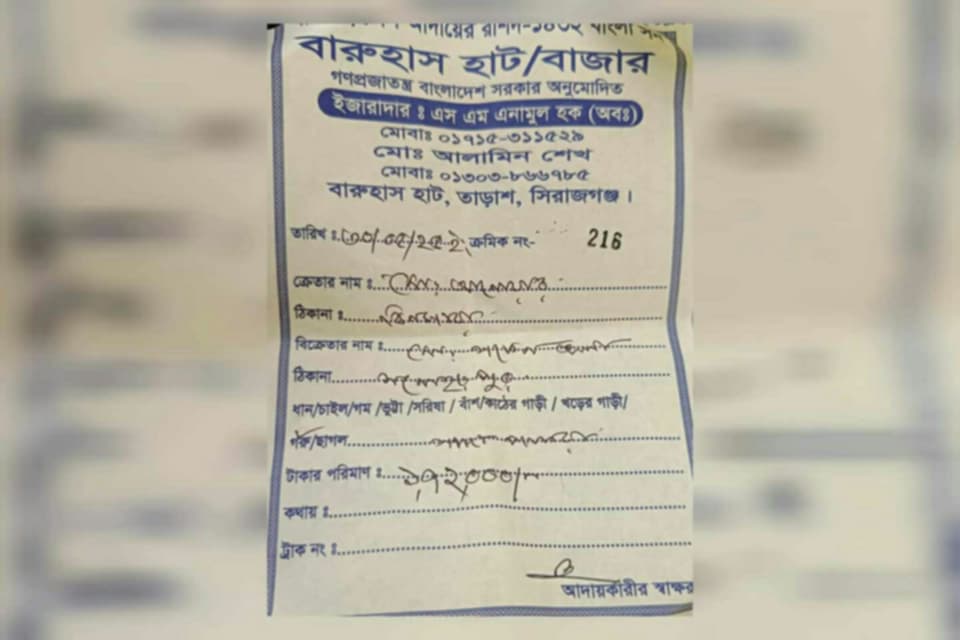 আদায়ের রশিদ-১৪৩২ বাংলা সন
বারুহাস হাট/বাজার
গণপ্রজাতন্ত্র বাংলাদেশ সরকার অনুমোদিত
ইজারাদার ঃ এস এম এনামুল হক (অবঃ)
মোবাঃ ০১৭১৫-৩১১৫২৯
মোঃ আলামিন শেখ
মোবাঃ ০১৩০৩-৮৬৬৭৮৫
বারুহাস হাট, তাড়াশ, সিরাজগঞ্জ।
তারিখ ঃ ৩০/০৫/২৫ ইং ক্রমিক নং- 216
ক্রেতার নাম ঃ
ঠিকানা ঃ
বিক্রেতার নাম ঃ
ঠিকানা
ধান/চাইল/গম /ভুট্টা /সরিষা / বাঁশ/কাঠের গাড়ী / খড়ের গাড়ী/
গরু/ছাগল
টাকার পরিমাণ ঃ ১৭২,০০০/=
কথায় ঃ
ট্রাক নং ঃ
আদায়কারীর স্বাক্ষর